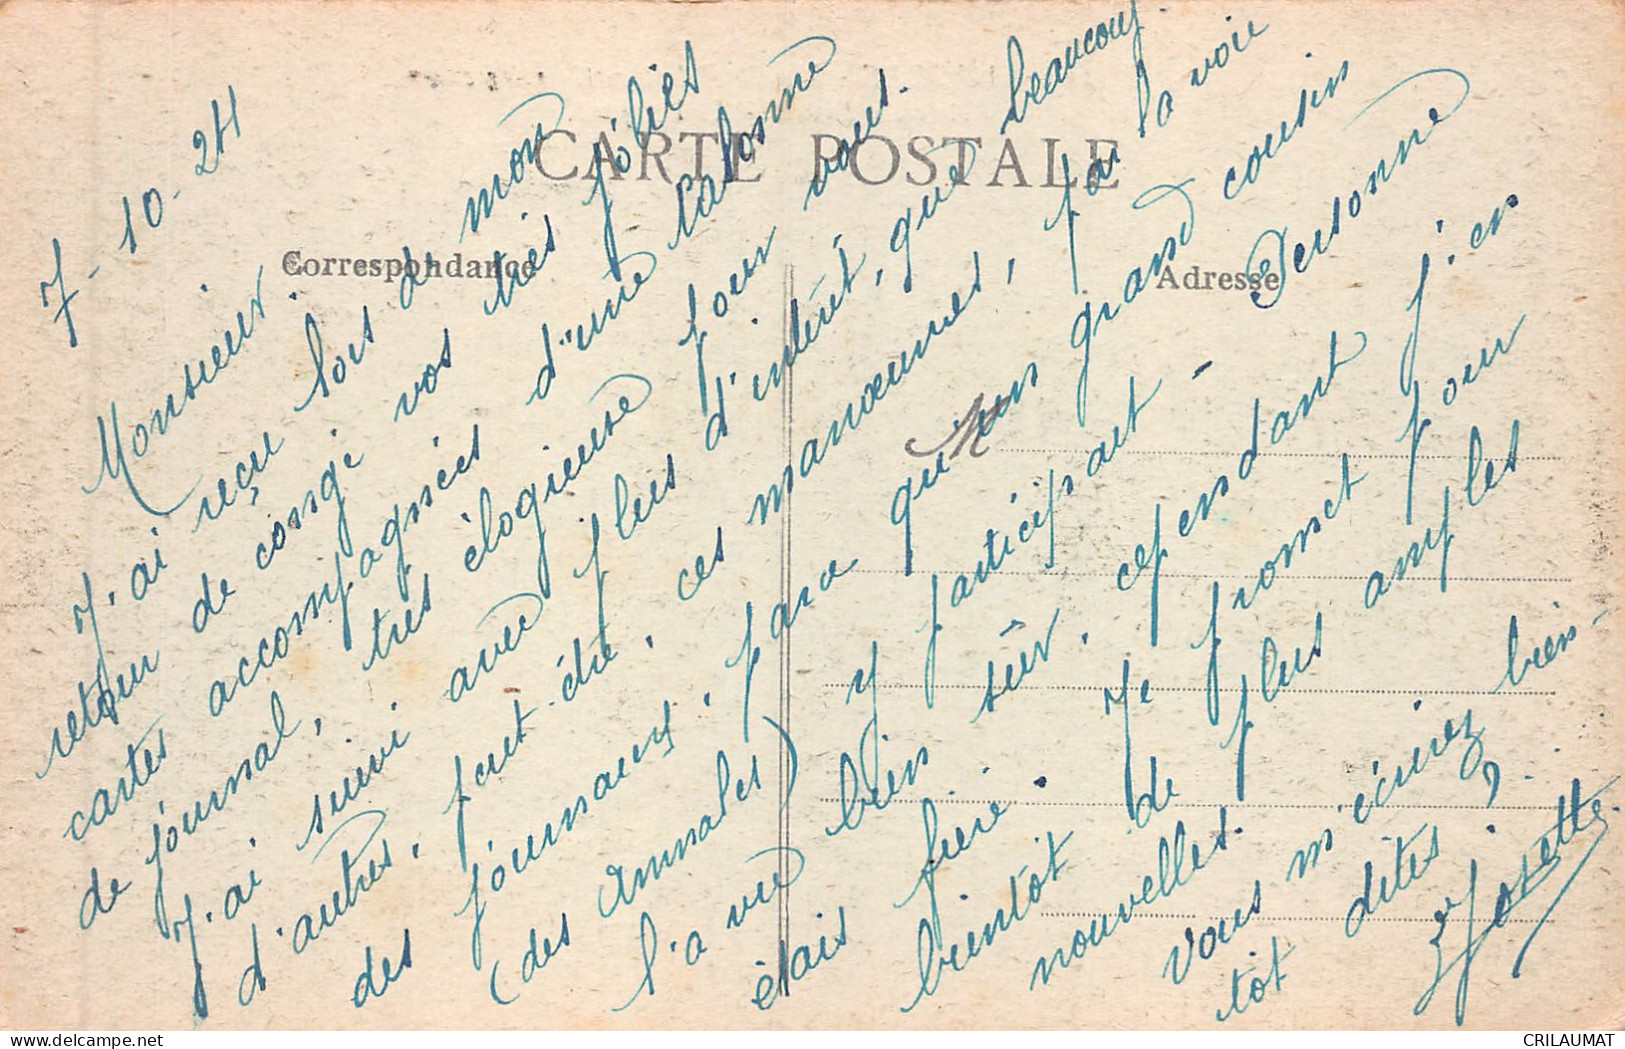 CARTE POSTALE
Correspondance
Adresse
M
7-10-24
Monsieur.
J'ai reçu lors de mon
retour de congé vos très jolies
cartes accompagnées d'une colonne
de journal, très élogieuse pour vous.
J'ai suivi avec plus d'intérêt, que beaucoup
d'autres, peut-être, ces manœuvres, par la voie
des journaux, parce qu'un grand cousin
(des Annales) y participait - Personne
l'a vu bien sûr, cependant j'en
étais fière. Je promet pour
bientôt de plus amples
nouvelles.
Vous m'écrirez bien-
tôt dites ?
Josette
CRILAUMAT
delcampe.net